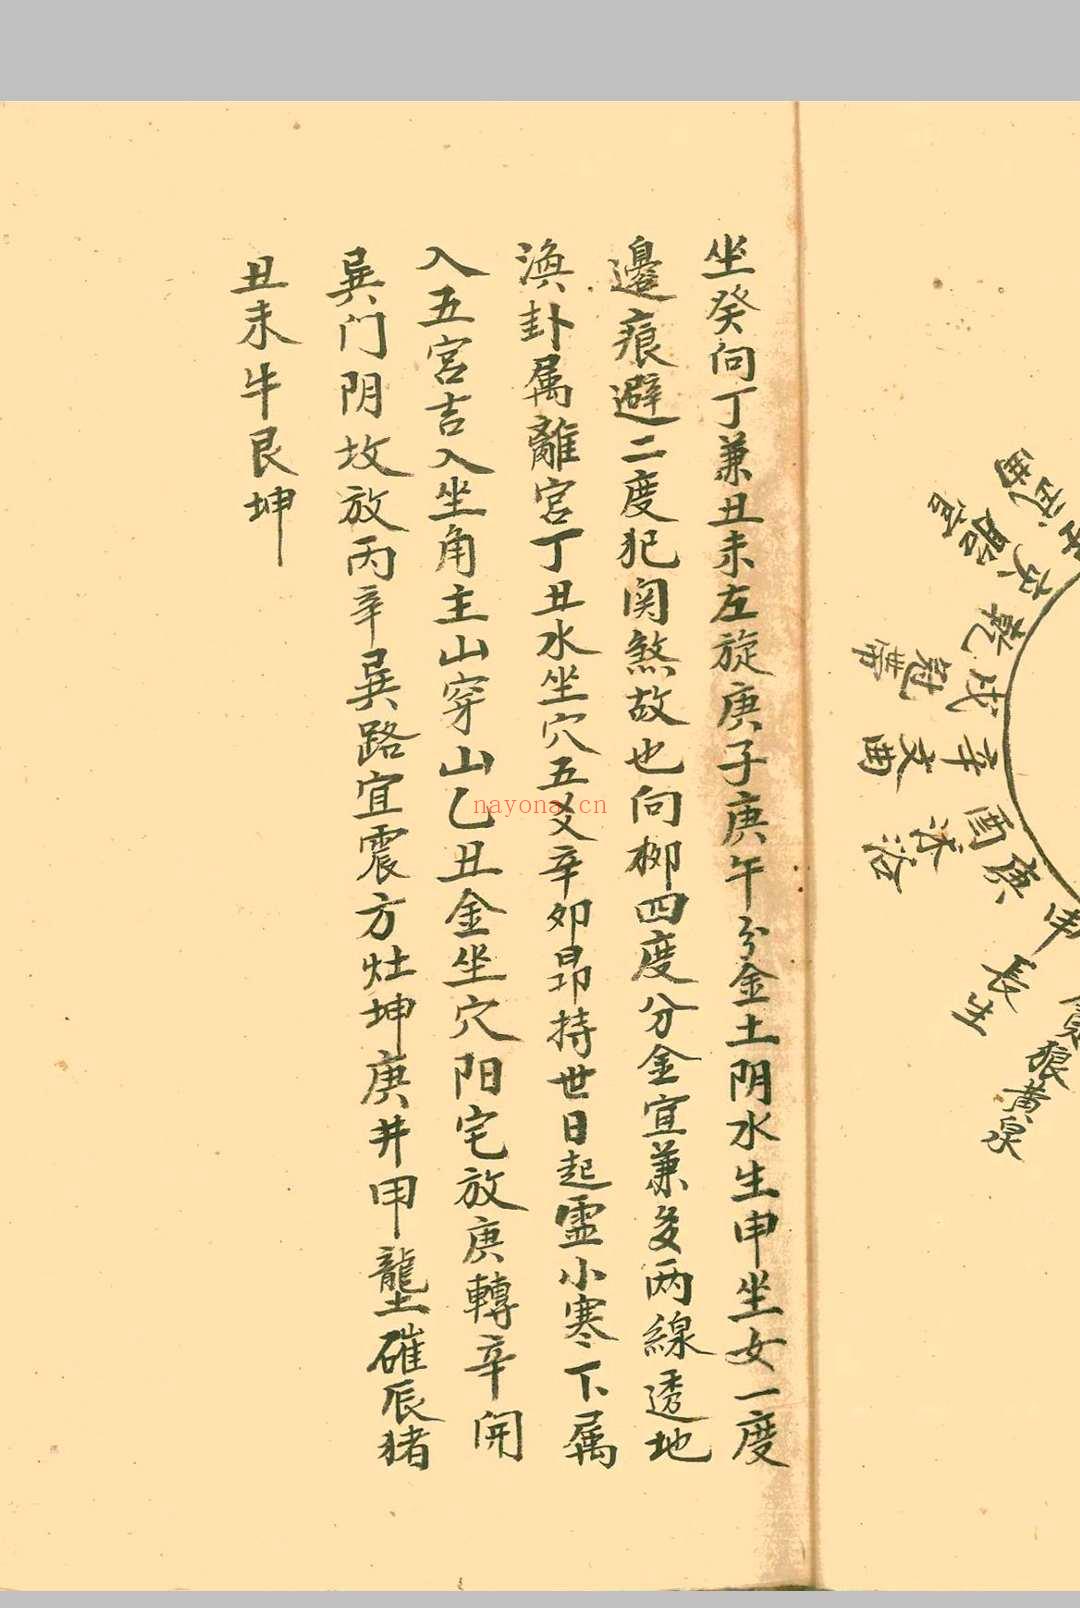 坐癸向丁兼丑未左旋庚子庚午分金土阴水生申坐女一度
邊痕避二度犯関煞故也向柳四度分金宜兼多两線透地
渙卦属離宮丁丑水坐穴五爻辛卯昂持世日起霊小寒下属
入五宮吉入坐角主山穿山乙丑金坐穴阳宅放庚轉辛開
巽门阴坟放丙辛巽路宜震方灶坤庚井甲壟碓辰猪
丑未牛艮坤
武曲
臨官
亥
乾
冠帯
戌
辛
文曲
酉
沐浴
庚
申
長生
狼
黄泉
nayona.cn